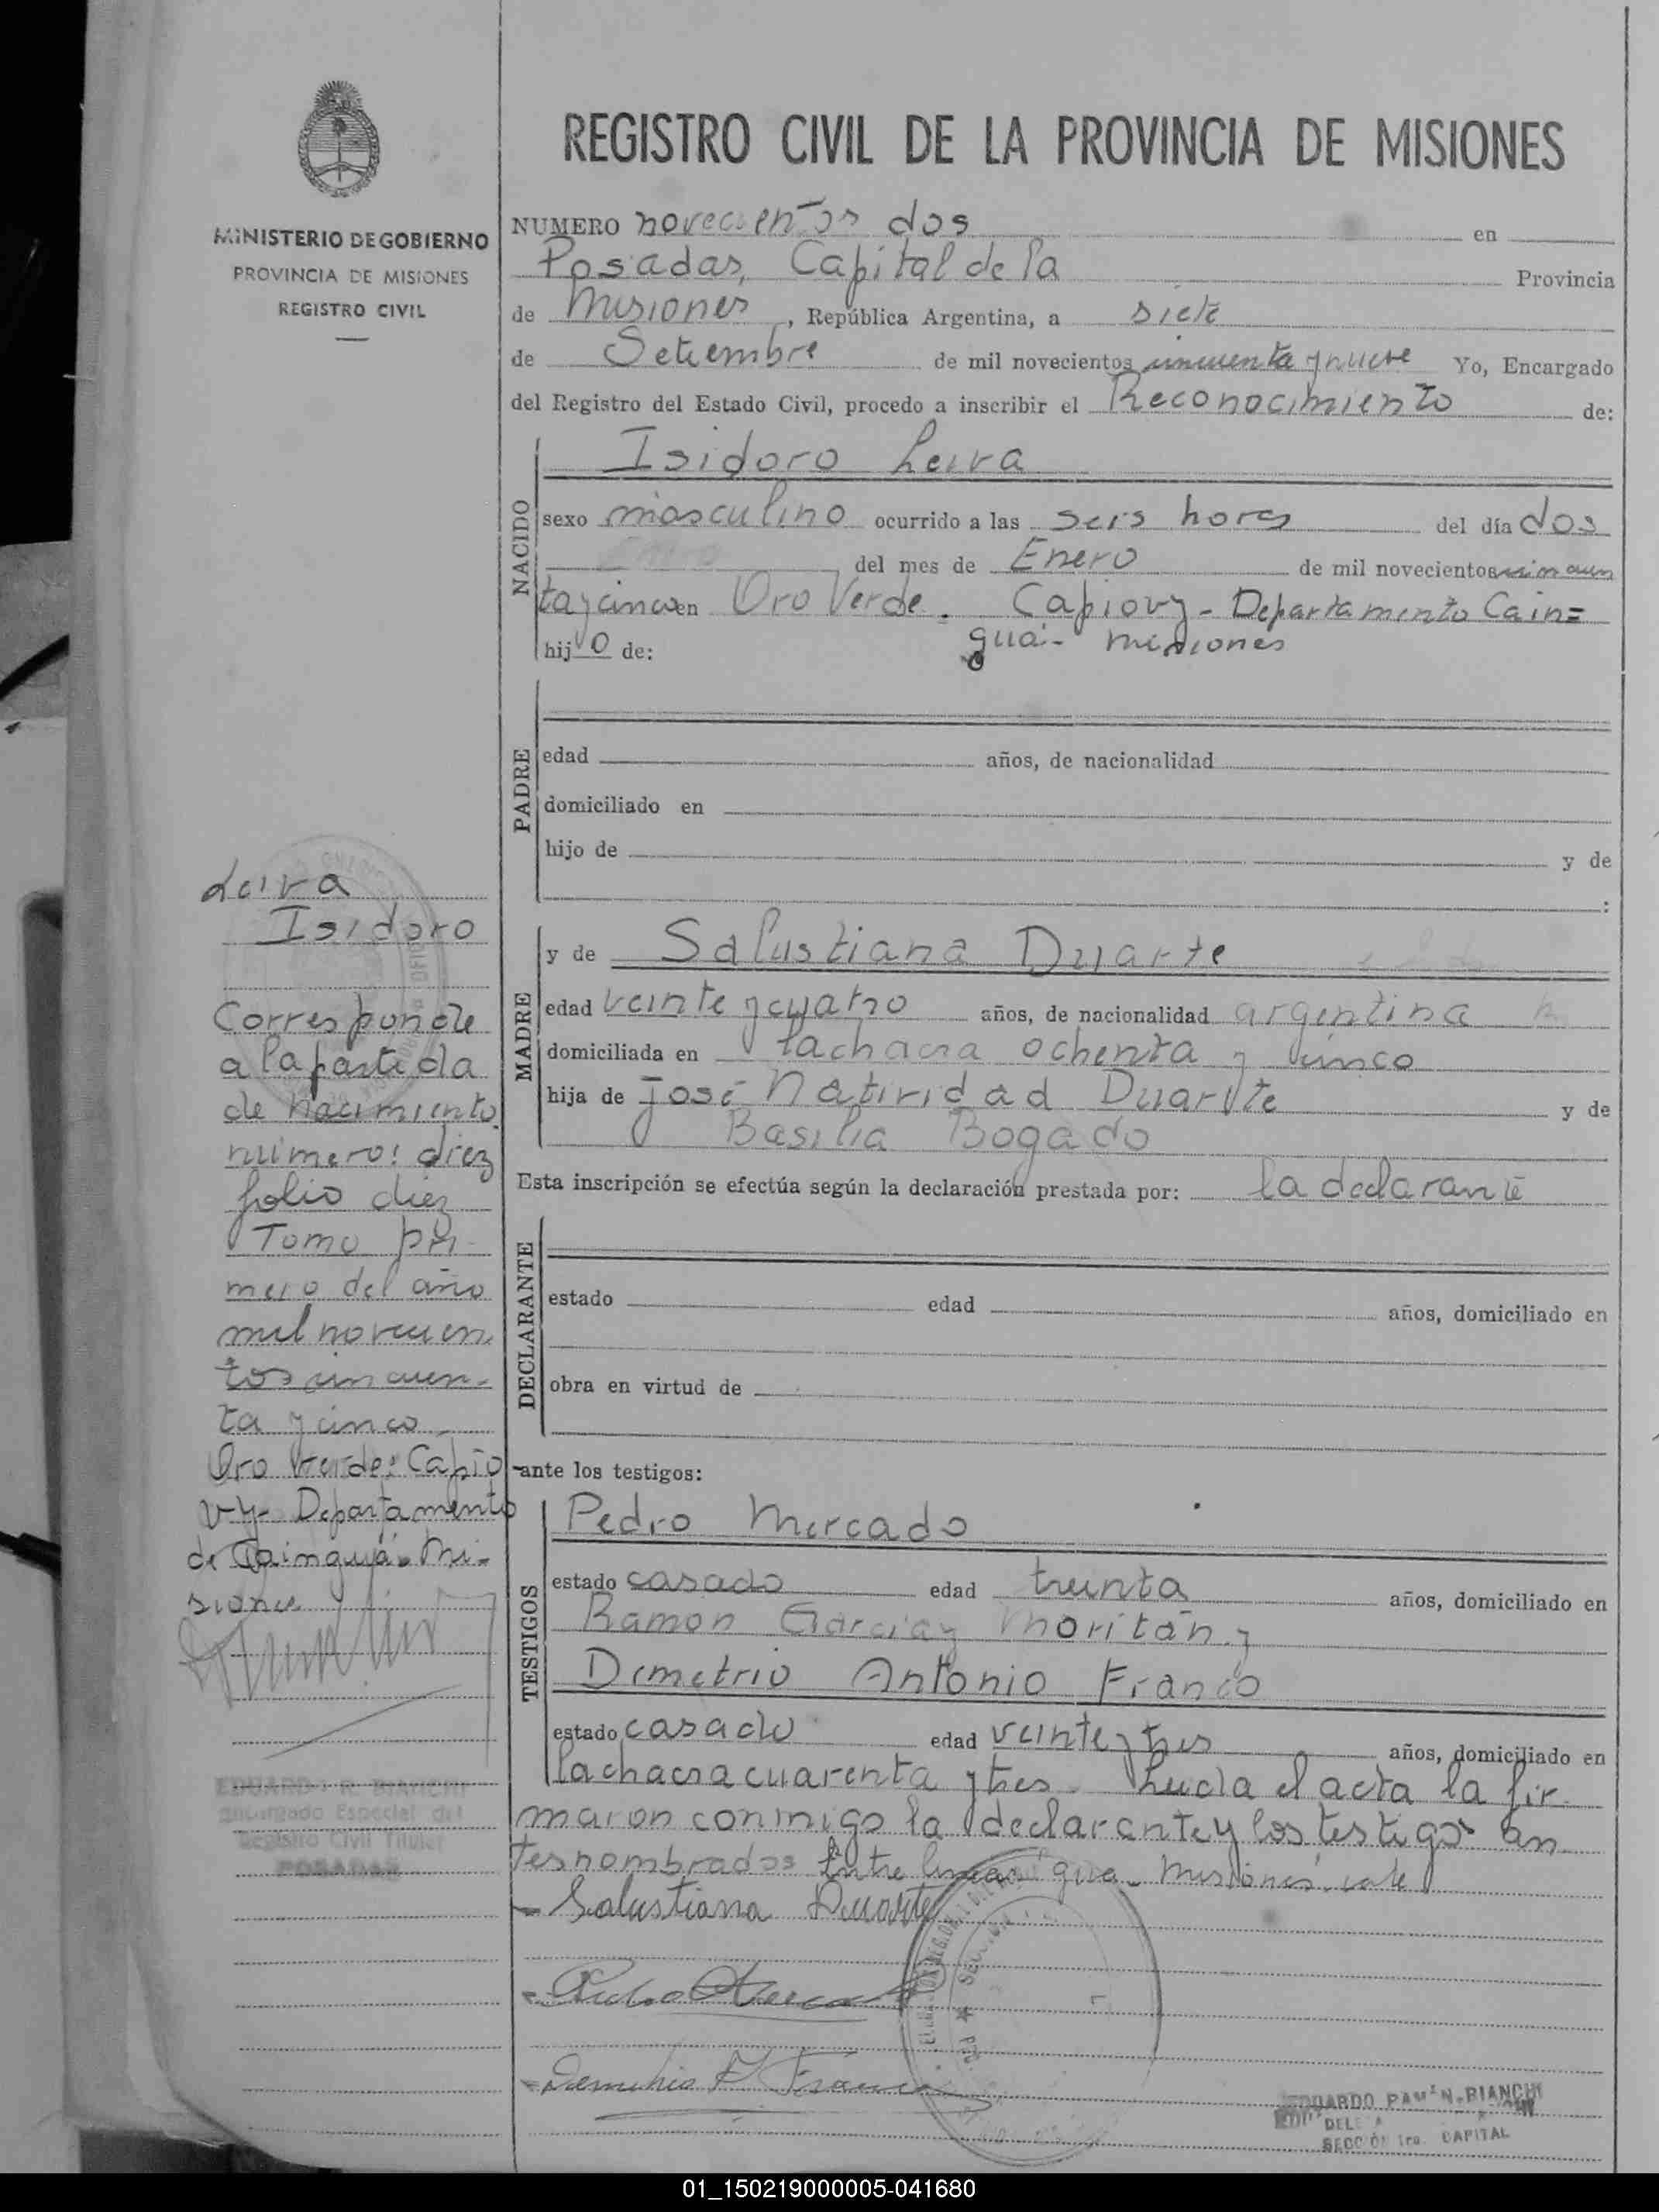 REGISTRO CIVIL DE LA PROVINCIA DE MISIONES
MINISTERIO DE GOBIERNO
PROVINCIA DE MISIONES
REGISTRO CIVIL
NUMERO novecientos dos en
Posadas, Capital de la Provincia
de Misiones, República Argentina, a siete
de Setiembre de mil novecientos cincuenta y nueve Yo, Encargado
del Registro del Estado Civil, procedo a inscribir el Reconocimiento de:
NACIDO
Isidoro Leiva
sexo masculino ocurrido a las seis horas del día dos
del mes de Enero de mil novecientos cincuen
ta y cinco en Oro Verde. Capiovy - Departamento Cain=
hijo de: guá - Misiones
PADRE
edad años, de nacionalidad
domiciliado en
hijo de y de
:
MADRE
y de Salustiana Duarte
edad veinte y cuatro años, de nacionalidad argentina
domiciliada en la chacra ochenta y cinco
hija de José Natividad Duarte y de
Basilia Bogado
Esta inscripción se efectúa según la declaración prestada por: la declarante
DECLARANTE
estado edad años, domiciliado en
obra en virtud de
ante los testigos:
TESTIGOS
Pedro Mercado
estado casado edad treinta años, domiciliado en
Ramon Garcia y Moritán y
Demetrio Antonio Franco
estado casado edad veinte y tres años, domiciliado en
la chacra cuarenta y tres. Leida el acta la fir
maron conmigo la declarante y los testigos an
tes nombrados Entre lineas "gua - Misiones" vale
- Salustiana Duarte
- Pedro Mercado
- Demetrio A Franco
Leiva
Isidoro
Corresponde
a la partida
de nacimiento
número: diez
folio diez
Tomo pri
mero del año
mil novecien
tos cincuen-
ta y cinco
Oro Verde: Capio
vy - Departamento
de Cainguá - Mi-
siones
EDUARDO R. BIANCHI
Encargado Especial del
Registro Civil Titular
POSADAS
EDUARDO RAMON BIANCHI
SECCION 1ra. CAPITAL
01_150219000005-041680